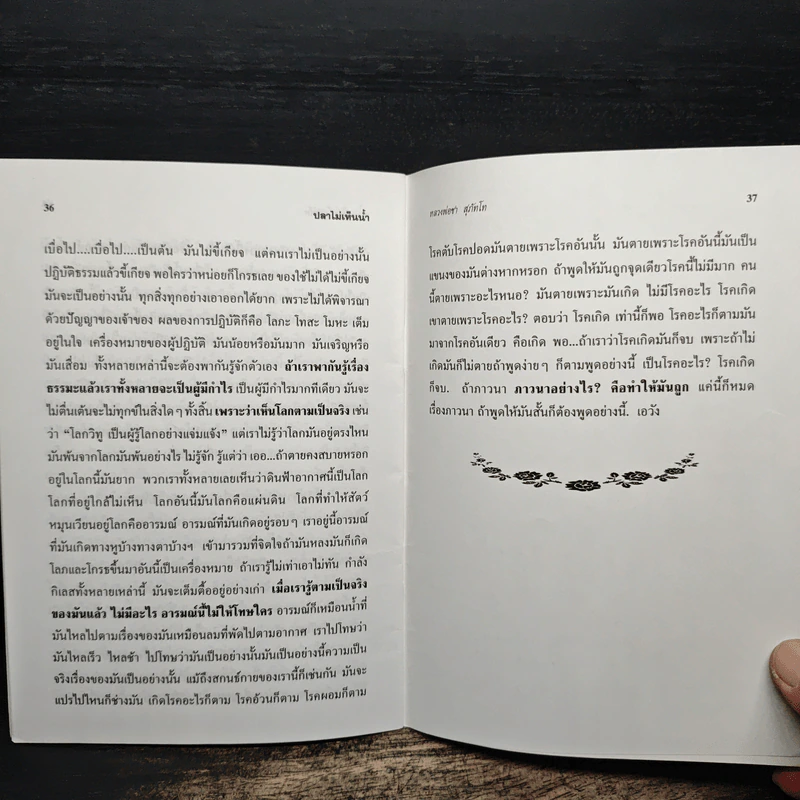 36
ปลาไม่เห็นน้ำ
เบื่อไป....เบื่อไป....เป็นต้น มันไม่ขี้เกียจ แต่คนเราไม่เป็นอย่างนั้น
ปฏิบัติธรรมแล้วขี้เกียจ พอใครว่าหน่อยก็โกรธเลย ของใช้ไม่ได้ไม่ขี้เกียจ
มันจะเป็นอย่างนั้น ทุกสิ่งทุกอย่างเอาออกได้ยาก เพราะไม่ได้พิจารณา
ด้วยปัญญาของเจ้าของ ผลของการปฏิบัติก็คือ โลภะ โทสะ โมหะ เต็ม
อยู่ในใจ เครื่องหมายของผู้ปฏิบัติ มันน้อยหรือมันมาก มันเจริญหรือ
มันเสื่อม ทั้งหลายเหล่านี้จะต้องพากันรู้จักตัวเอง ถ้าเราพากันรู้เรื่อง
ธรรมะแล้วเราทั้งหลายจะเป็นผู้มีกำไร เป็นผู้มีกำไรมากทีเดียว มันจะ
ไม่ตื่นเต้นจะไม่ทุกข์ในสิ่งใดๆ ทั้งสิ้น เพราะว่าเห็นโลกตามเป็นจริง เช่น
ว่า “โลกวิทู เป็นผู้รู้โลกอย่างแจ่มแจ้ง” แต่เราไม่รู้ว่าโลกมันอยู่ตรงไหน
มันพ้นจากโลกมันพ้นอย่างไร ไม่รู้จัก รู้แต่ว่า เออ...ถ้าตายคงสบายหรอก
อยู่ในโลกนี้มันยาก พวกเราทั้งหลายเลยเห็นว่าดินฟ้าอากาศนี้เป็นโลก
โลกที่อยู่ใกล้ไม่เห็น โลกอันนี้มันโลกคือแผ่นดิน โลกที่ทำให้สัตว์
หมุนเวียนอยู่โลกคืออารมณ์ อารมณ์ที่มันเกิดอยู่รอบๆ เราอยู่นี้อารมณ์
ที่มันเกิดทางหูบ้างทางตาบ้างฯ เข้ามารวมที่จิตใจถ้ามันหลงมันก็เกิด
โลภและโกรธขึ้นมาอันนี้เป็นเครื่องหมาย ถ้าเรารู้ไม่เท่าเอาไม่ทัน กำลัง
กิเลสทั้งหลายเหล่านี้ มันจะเต็มตื้ออยู่อย่างเก่า เมื่อเรารู้ตามเป็นจริง
ของมันแล้ว ไม่มีอะไร อารมณ์นี้ไม่ให้โทษใคร อารมณ์ก็เหมือนน้ำที่
มันไหลไปตามเรื่องของมันเหมือนลมที่พัดไปตามอากาศ เราไปโทษว่า
มันไหลเร็ว ไหลช้า ไปโทษว่ามันเป็นอย่างนั้นมันเป็นอย่างนี้ความเป็น
จริงเรื่องของมันเป็นอย่างนั้น แม้ถึงสกนธ์กายของเรานี้ก็เช่นกัน มันจะ
แปรไปไหนก็ช่างมัน เกิดโรคอะไรก็ตาม โรคอ้วนก็ตาม โรคผอมก็ตาม
37
หลวงพ่อชา สุภัทโท
โรคตับโรคปอดมันตายเพราะโรคอันนั้น มันตายเพราะโรคอันนี้มันเป็น
แขนงของมันต่างหากหรอก ถ้าพูดให้มันถูกจุดเดียวโรคนี้ไม่มีมาก คน
นี้ตายเพราะอะไรหนอ? มันตายเพราะมันเกิด ไม่มีโรคอะไร โรคเกิด
เขาตายเพราะโรคอะไร? ตอบว่า โรคเกิด เท่านี้ก็พอ โรคอะไรก็ตามมัน
มาจากโรคอันเดียว คือเกิด พอ...ถ้าเราว่าโรคเกิดมันก็จบ เพราะถ้าไม่
เกิดมันก็ไม่ตายถ้าพูดง่ายๆ ก็ตามพูดอย่างนี้ เป็นโรคอะไร? โรคเกิด
ก็จบ. ถ้าภาวนา ภาวนาอย่างไร? คือทำให้มันถูก แค่นี้ก็หมด
เรื่องภาวนา ถ้าพูดให้มันสั้นก็ต้องพูดอย่างนี้. เอวัง